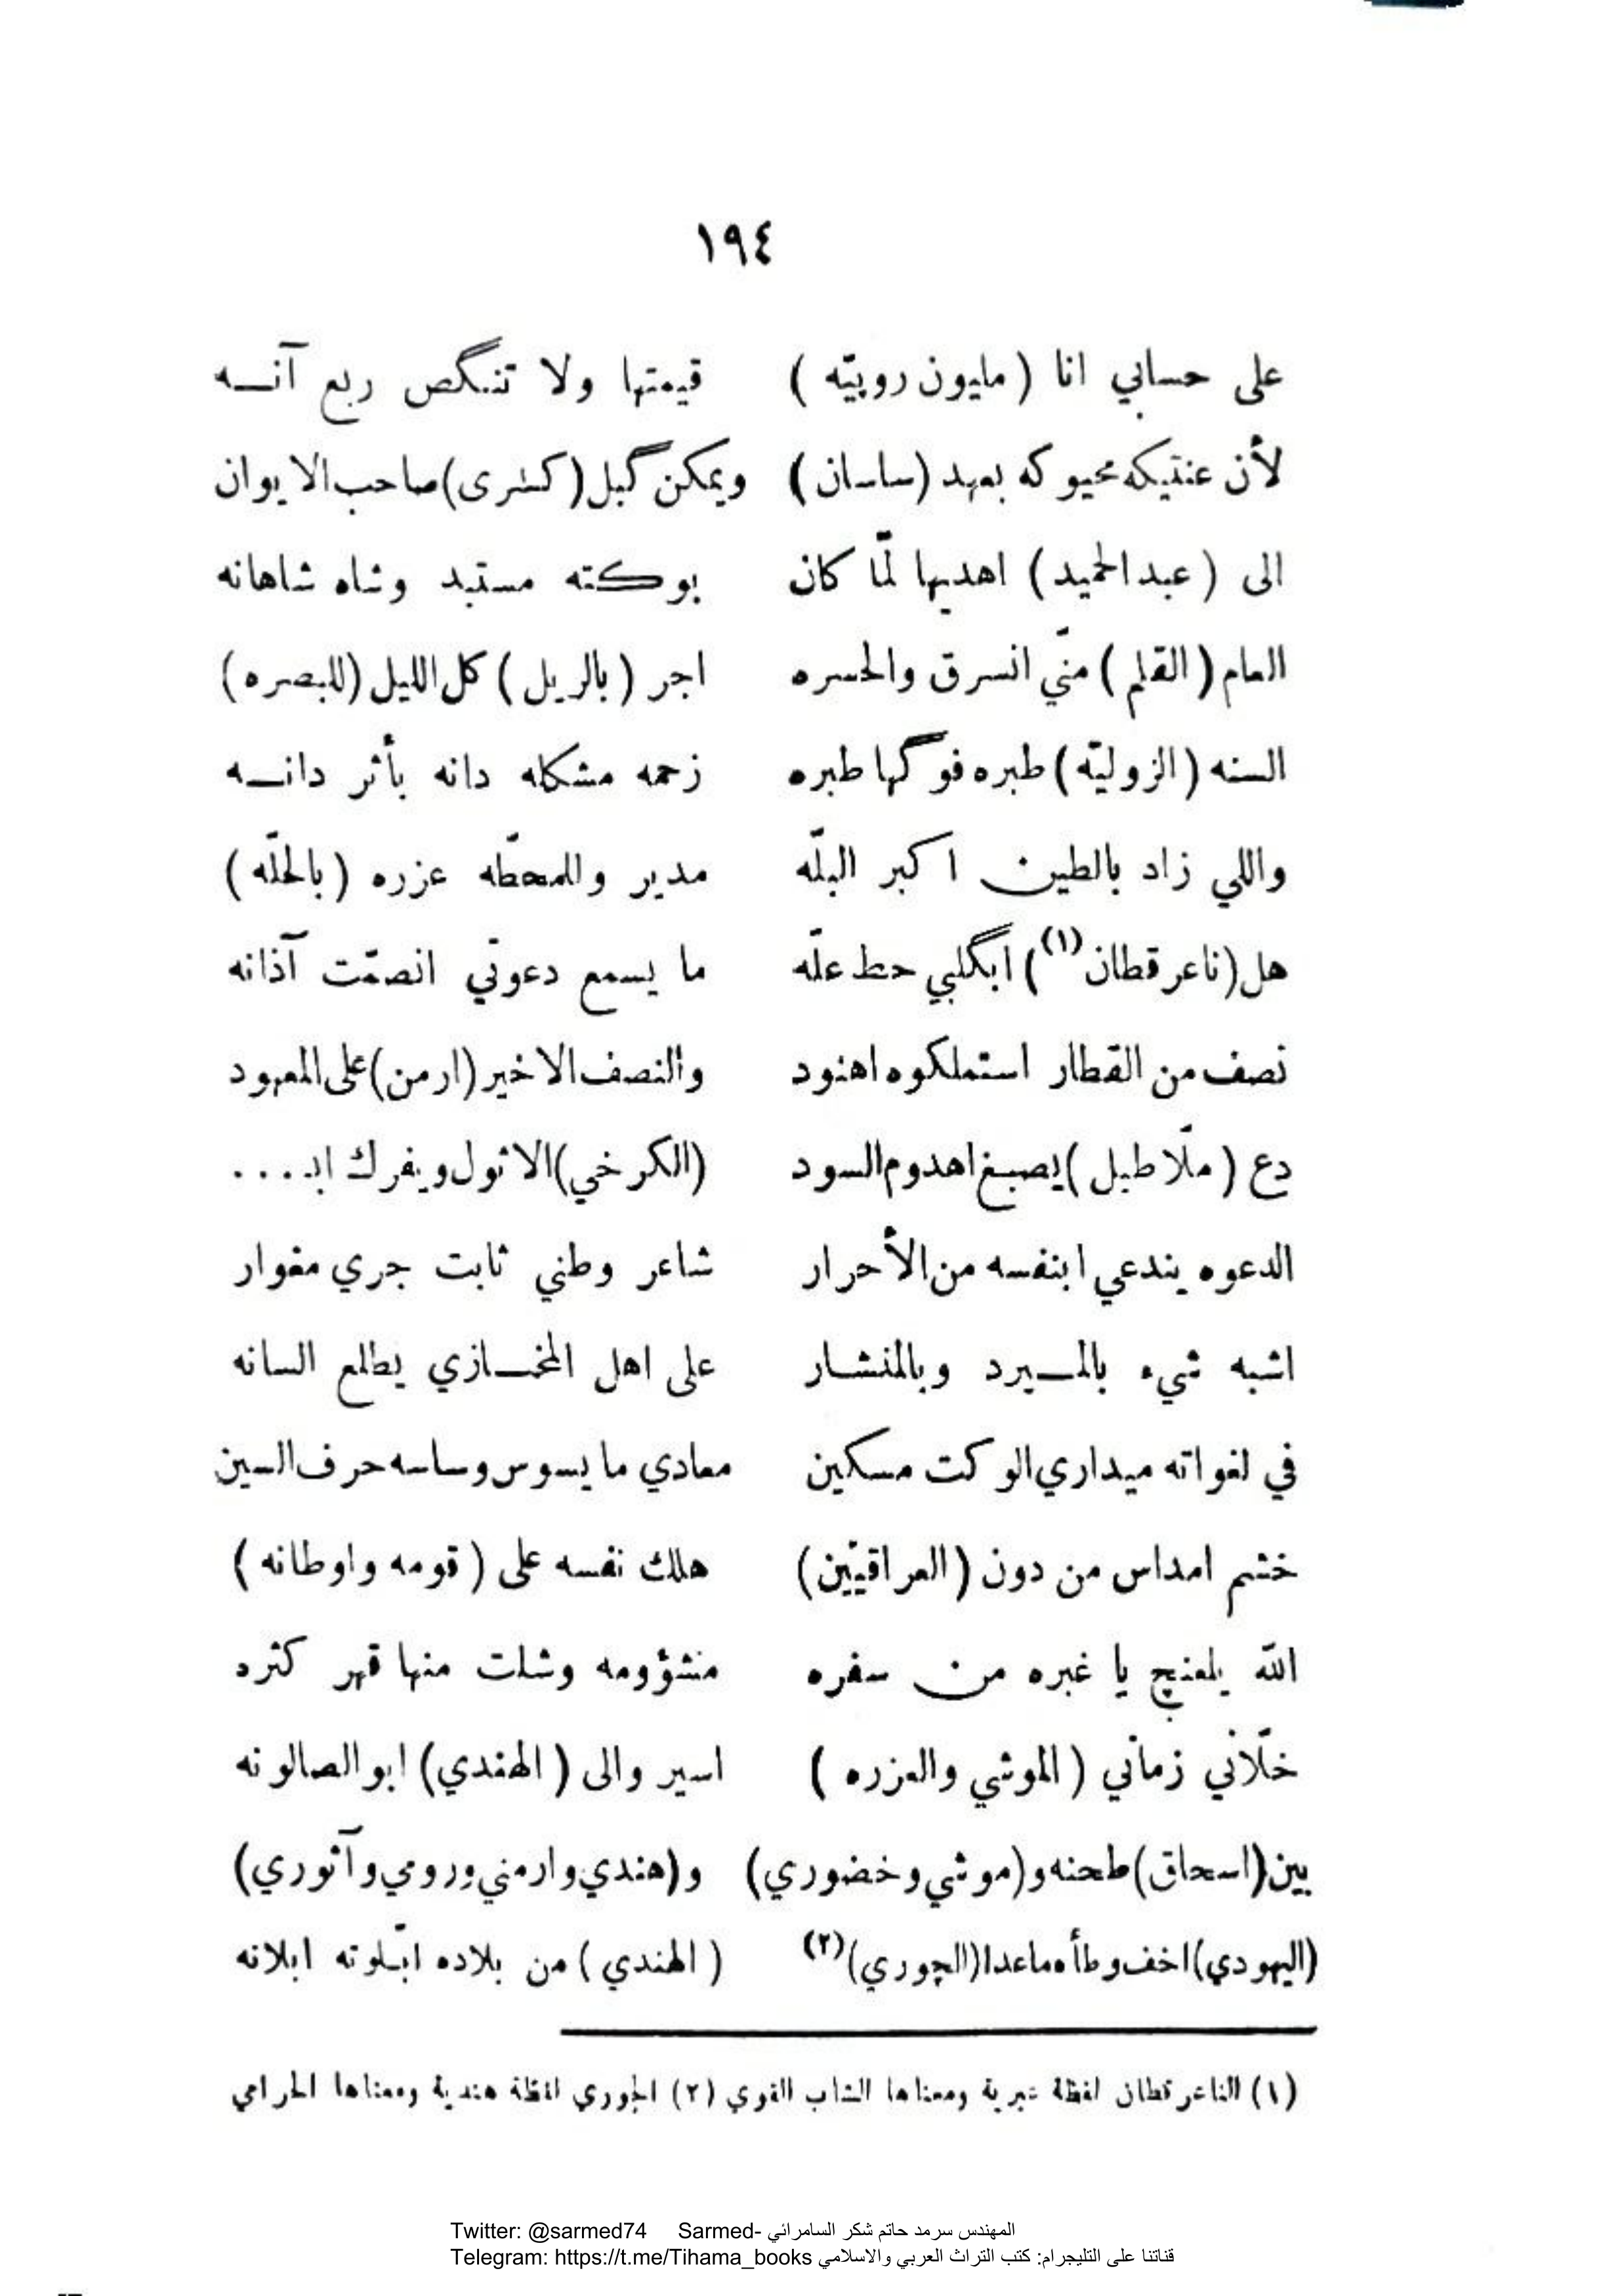 ١٩٤
على حسابي انا ( مليون روپيّه ) قيمتها ولا تنگص ربع آنـه
لأن عنتيكه محيوكه بعهد (ساسان) ويمكن گبل (كسرى) صاحب الايوان
الى ( عبد الحميد ) اهديها لمّا كان بوكته مستبد وشاه شاهانه
العام ( القلم ) منّي انسرق والحسره اجر ( بالريل ) كل الليل (للبصره)
السنه ( الزوليّه ) طبره فوگها طبره زحمه مشكله دانه بأثر دانـه
واللي زاد بالطين اكبر البلّه مدير وللمحطّه عزره ( بالحلّه )
هل (ناعر قطان (١) ) ابگلبي حط علّه ما يسمع دعوتي انصمّت آذانه
نصف من القطار استملكوه اهنود والنصف الاخير (ارمن) على المعهود
دع ( ملّا طبل ) يصبغ اهدوم السود (الكرخي) الاثول ويفرك ابـ....
الدعوه يندعي ابنفسه من الأحرار شاعر وطني ثابت جري مغوار
اشبه شيء بالمـبرد وبالمنشـار على اهل المخـازي يطلع السانه
في لغواته ميداري الوكت مسكين معادي ما يسوس وساسه حرف السين
ختم امداس من دون ( العراقيّين) هلك نفسه على ( قومه واوطانه )
الله يلعنچ يا غبره من سفره منشؤومه وشلت منها قهر كثره
خلّاني زماني ( الموشي والعزره ) اسير والى ( الهندي) ابو الصالونه
بين (اسحاق) طحنه و(موشي وخضوري) و (هندي وارمني ورومي وآثوري)
(اليهودي) اخف وطأه ماعدا (الچوري) (٢) ( الهندي ) من بلاده ابّلوته ابلانه
(١) الناعر قطان لفظة عبرية ومعناها الشاب القوي (٢) الچوري لفظة هندية ومعناها الحرامي
Twitter: @sarmed74 Sarmed- المهندس سرمد حاتم شكر السامرائي
Telegram: https://t.me/Tihama_books قناتنا على التليجرام: كتب التراث العربي والاسلامي